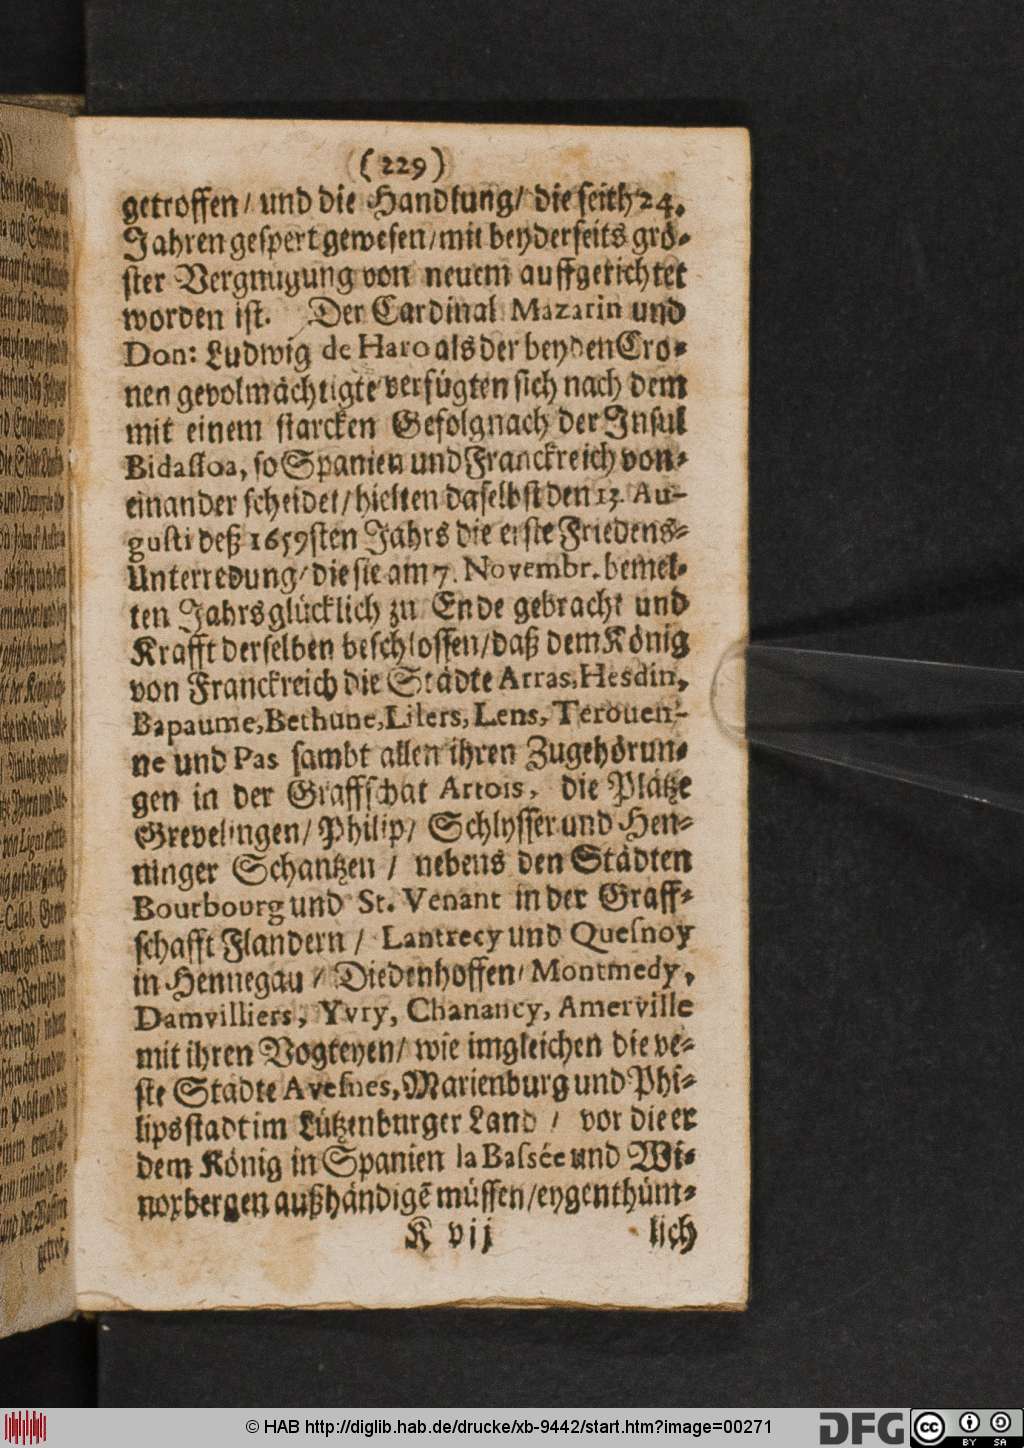 (229)
getroffen/ und die Handlung/ die seith 24.
Jahren gespert gewesen/ mit beyderseits grö-
ster Vergnugung von neuem auffgerichtet
worden ist. Der Cardinal Mazarin und
Don: Ludwig de Haro als der beyden Cro-
nen gevolmächtigte verfügten sich nach dem
mit einem starcken Gefolg nach der Insul
Bidassoa, so Spanien und Franckreich von-
einander scheidet/ hielten daselbst den 13. Au-
gusti deß 1659sten Jahrs die erste Friedens-
Unterredung/ die sie am 7. Novembr. bemel-
ten Jahrs glücklich zu Ende gebracht und
Krafft derselben beschlossen/ daß dem König
von Franckreich die Städte Arras, Hesdin,
Bapaume, Bethune, Lilers, Lens, Terouen-
ne und Pas sambt allen ihren Zugehörun-
gen in der Graffschat Artois, die Plätze
Grevelingen/ Philip/ Schlysser und Hen-
ninger Schantzen / nebens den Städten
Bourbourg und St. Venant in der Graff-
schafft Flandern / Lantrecy und Quesnoy
in Hennegau / Diedenhoffen/ Montmedy,
Damvilliers, Yvry, Chanancy, Amerville
mit ihren Vogteyen/ wie imgleichen die ve-
ste Städte Avesnes, Marienburg und Phi-
lipsstadt im Lützenburger Land / vor die er
dem König in Spanien la Bassée und Wi-
noxbergen außhändigẽ müssen/ eygenthüm-
K vij lich
© HAB http://diglib.hab.de/drucke/xb-9442/start.htm?image=00271
DFG
cc BY SA